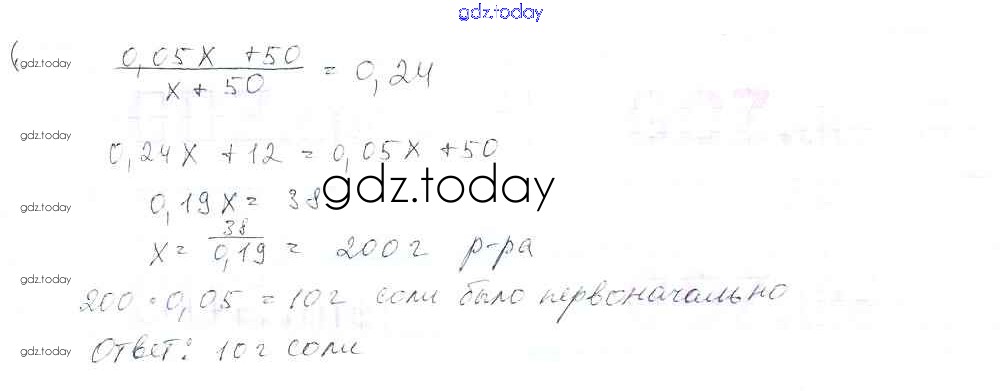 gdz.today
gdz.today
(0,05x + 50) / (x + 50) = 0,24
gdz.today
0,24x + 12 = 0,05x + 50
0,19x = 38
gdz.today
gdz.today
x = 38 / 0,19 = 200 г р-ра
gdz.today
200 · 0,05 = 10 г соли было первоначально
gdz.today
Ответ: 10 г соли